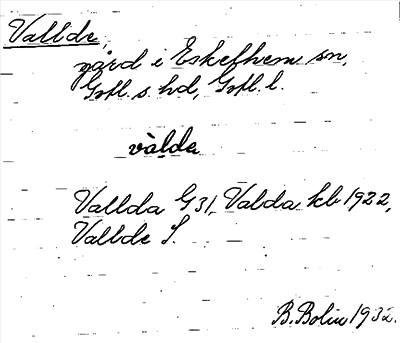 Vallde,
gård i Eskelhem sn,
Gotl. s. hd, Gotl. l.
vàlda
Vallda G 31, Valda kb 1922,
Vallde S.
B. Bolin 1932.